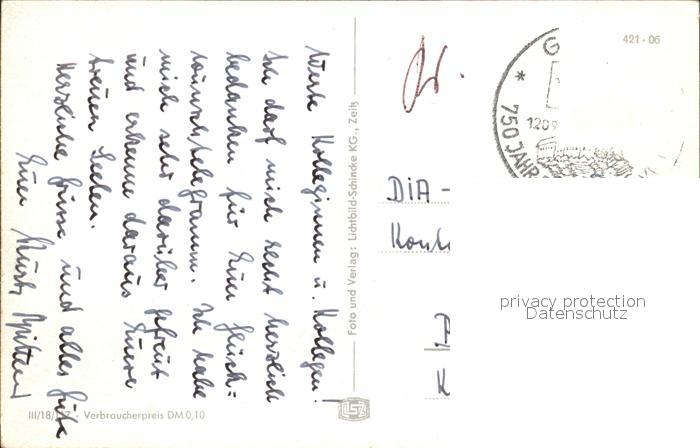 Werte Kolleginnen u. Kollegen!
Ich darf mich recht herzlich
bedanken für Eure Glück=
wunschtelegramm. Ich habe
mich sehr darüber gefreut
und erkenne daraus Eure
treuen Seelen.
Herzliche Grüsse und alles Gute
Euer
III/18/ - Verbraucherpreis DM 0,10
Foto und Verlag: Lichtbild-Schincke KG., Zeitz
LSZ
421-06
G
* 750 JAHR
1209
DIA -
K
privacy protection
Datenschutz